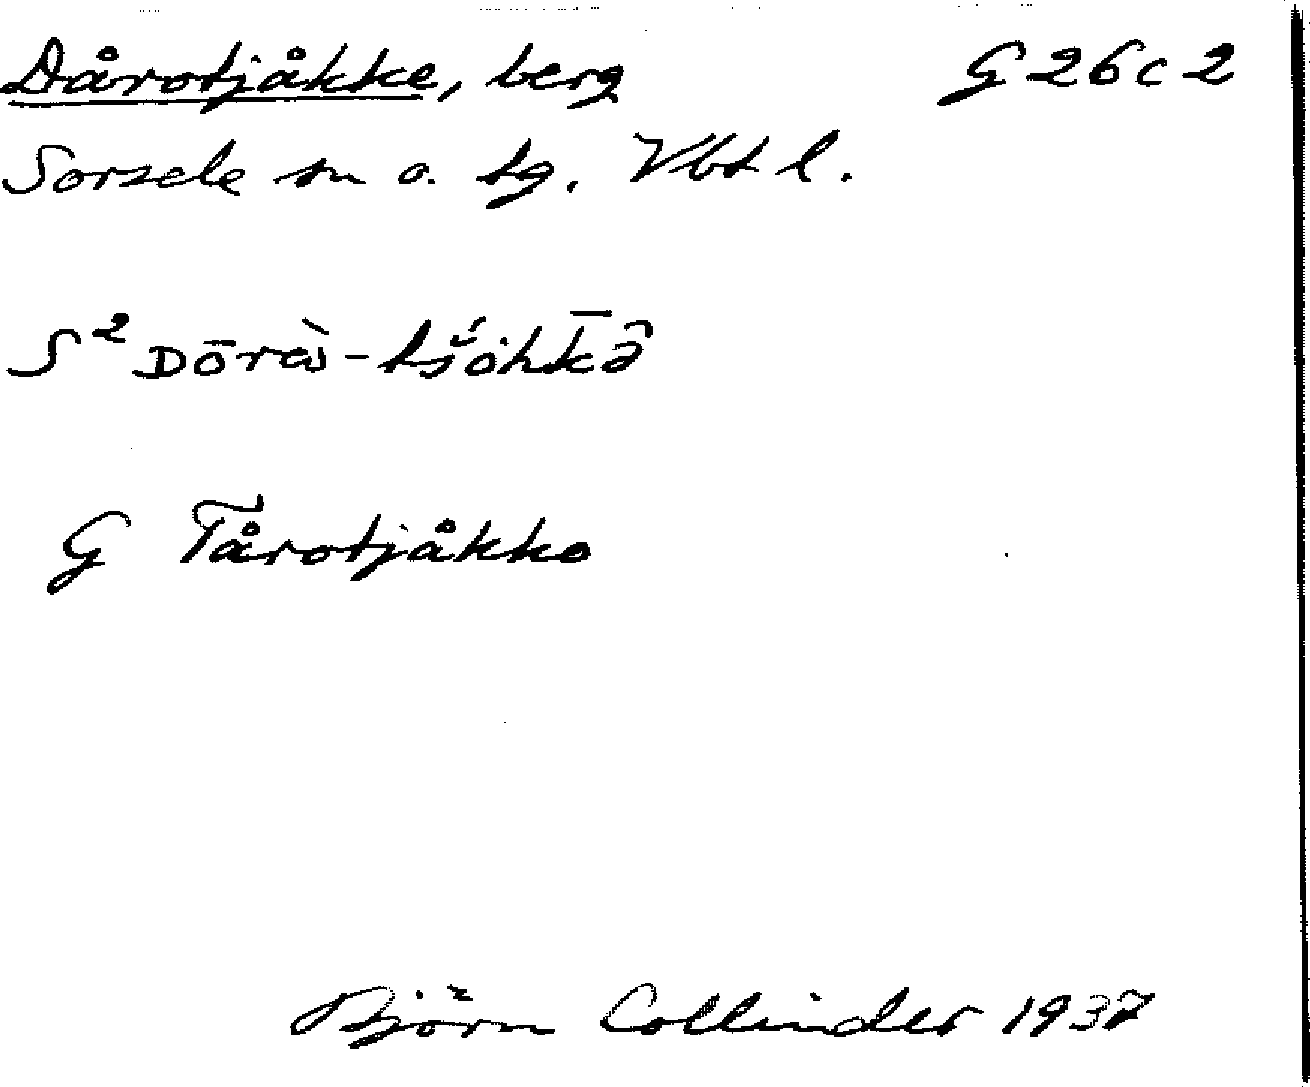 Dårotjåkke, berg G 26 c 2
Sorsele sn o. tg. Vbt l.
S² Dōrɛ̀ὼ-tš́ȯhk̄ə̑
G Tårotjåkko
Björn Collinder 1937